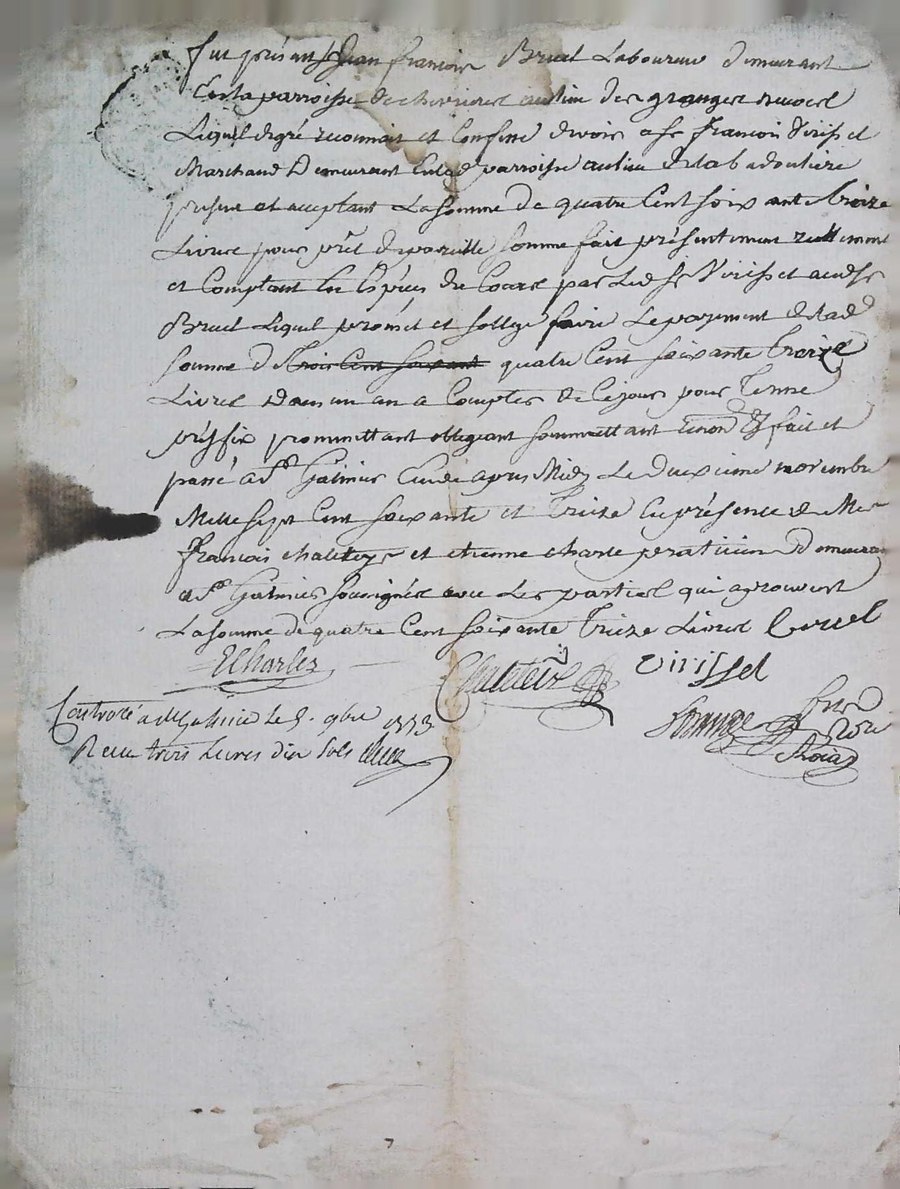 fut présent Jean francois Bruel Laboureur demeurant
En la parroisse de chevrieres au lieu des granges
Lequel degré reconnait et Confesse devoir a Sr francois Virisset
Marchand Demeurant En lad parroisse au lieu de la badouliere
présent et acceptant La somme de quatre Cent soixante treize
Livres pour prêt de pareille somme fait présentement réellement
et Comptant En Espéces du Cours par Led Sr Virisset aud Sr
Bruel Lequel promet et soblige faire Le payement de lad
somme de trois Cent soixant quatre Cent soixante treize
Livres Dans un an a Compter de Ce jour pour terme
préffix promettant obligeant soumettant renon &c fait et
passé a St Galmier Etude apres Midy Le deuxieme novembre
Mille sept Cent soixante et treize En présence de Me
francois chaleteyr et etienne charle praticien Demeurant
a St Galmier soussignés avec Les parties qui aprouvent
La somme de quatre Cent soixante treize Livres bruel
ECharles Chaleteir virissel
Controlé a St Galmier le 5. 9bre 1773
Recu trois Livres dix sols